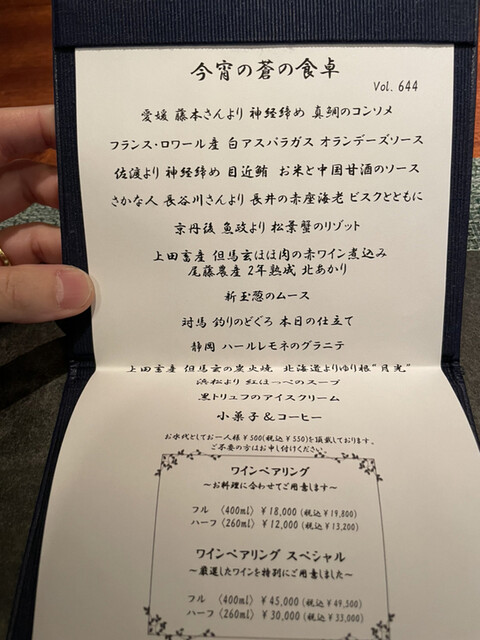 今宵の蒼の食卓
Vol. 644
愛媛 藤本さんより 神経締め 真鯛のコンソメ
フランス・ロワール産 白アスパラガス オランデーズソース
佐渡より 神経締め 目近鮪 お米と中国甘酒のソース
さかな人 長谷川さんより 長井の赤座海老 ビスクとともに
京丹後 魚政より 松葉蟹のリゾット
上田畜産 但馬玄ほほ肉の赤ワイン煮込み
尾藤農産 2年熟成 北あかり
新玉葱のムース
対馬 釣りのどぐろ 本日の仕立て
静岡 ハールレモネのグラニテ
上田畜産 但馬玄の炭火焼 北海道よりゆり根"月光"
浜松より 紅ほっぺのスープ
黒トリュフのアイスクリーム
小菓子&コーヒー
お水代としてお一人様¥500(税込¥550)を頂戴しております。
ご不要の方はお申し付けください。
ワインペアリング
～お料理に合わせてご用意します～
フル 〈400ml〉 ¥18,000 (税込¥19,800)
ハーフ〈260ml〉 ¥12,000 (税込¥13,200)
ワインペアリング スペシャル
～厳選したワインを特別にご用意しました～
フル 〈400ml〉 ¥45,000 (税込¥49,500)
ハーフ〈260ml〉 ¥30,000 (税込¥33,000)